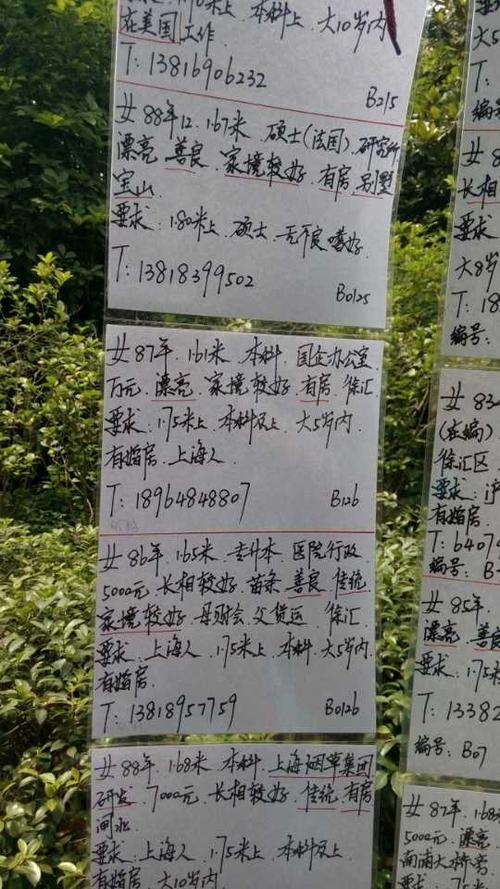 在美国工作
T:13816906232
B215
女88年12.1.67米.硕士(法国).研究所
漂亮.善良.家境较好.有房.别墅
宝山
要求:1.80米上.硕士.无不良嗜好.
T:13818399502
B0125
女87年.1.61米.本科.国企办公室
万元.漂亮.家境较好.有房.徐汇
要求:1.75米上.本科及上.大5岁内
有婚房.上海人.
T:18964848807
B126
女86年.1.65米.专升本.医院行政
5000元.长相较好.苗条.善良.传统.
家境较好.母财会.父货运.徐汇.
要求:上海人.1.75米上.本科.大5岁内
有婚房.
T:13818957759
B0126
女88年.1.68米.本科.上海烟草集团
研发.7000元.长相较好.传统.有房
闸北
要求:上海人.1.75米上.本科及上
有婚房.大10岁内
编号
女8
长相
要求
大8岁
T:18
编号:
女834
(在编)
徐汇区
要求:沪
有婚房.
T:6407
编号:B
女85年.
漂亮.善良
要求:1.75米
T:13382
编号:B07
女87年.1.68
5000元.漂亮
要求: